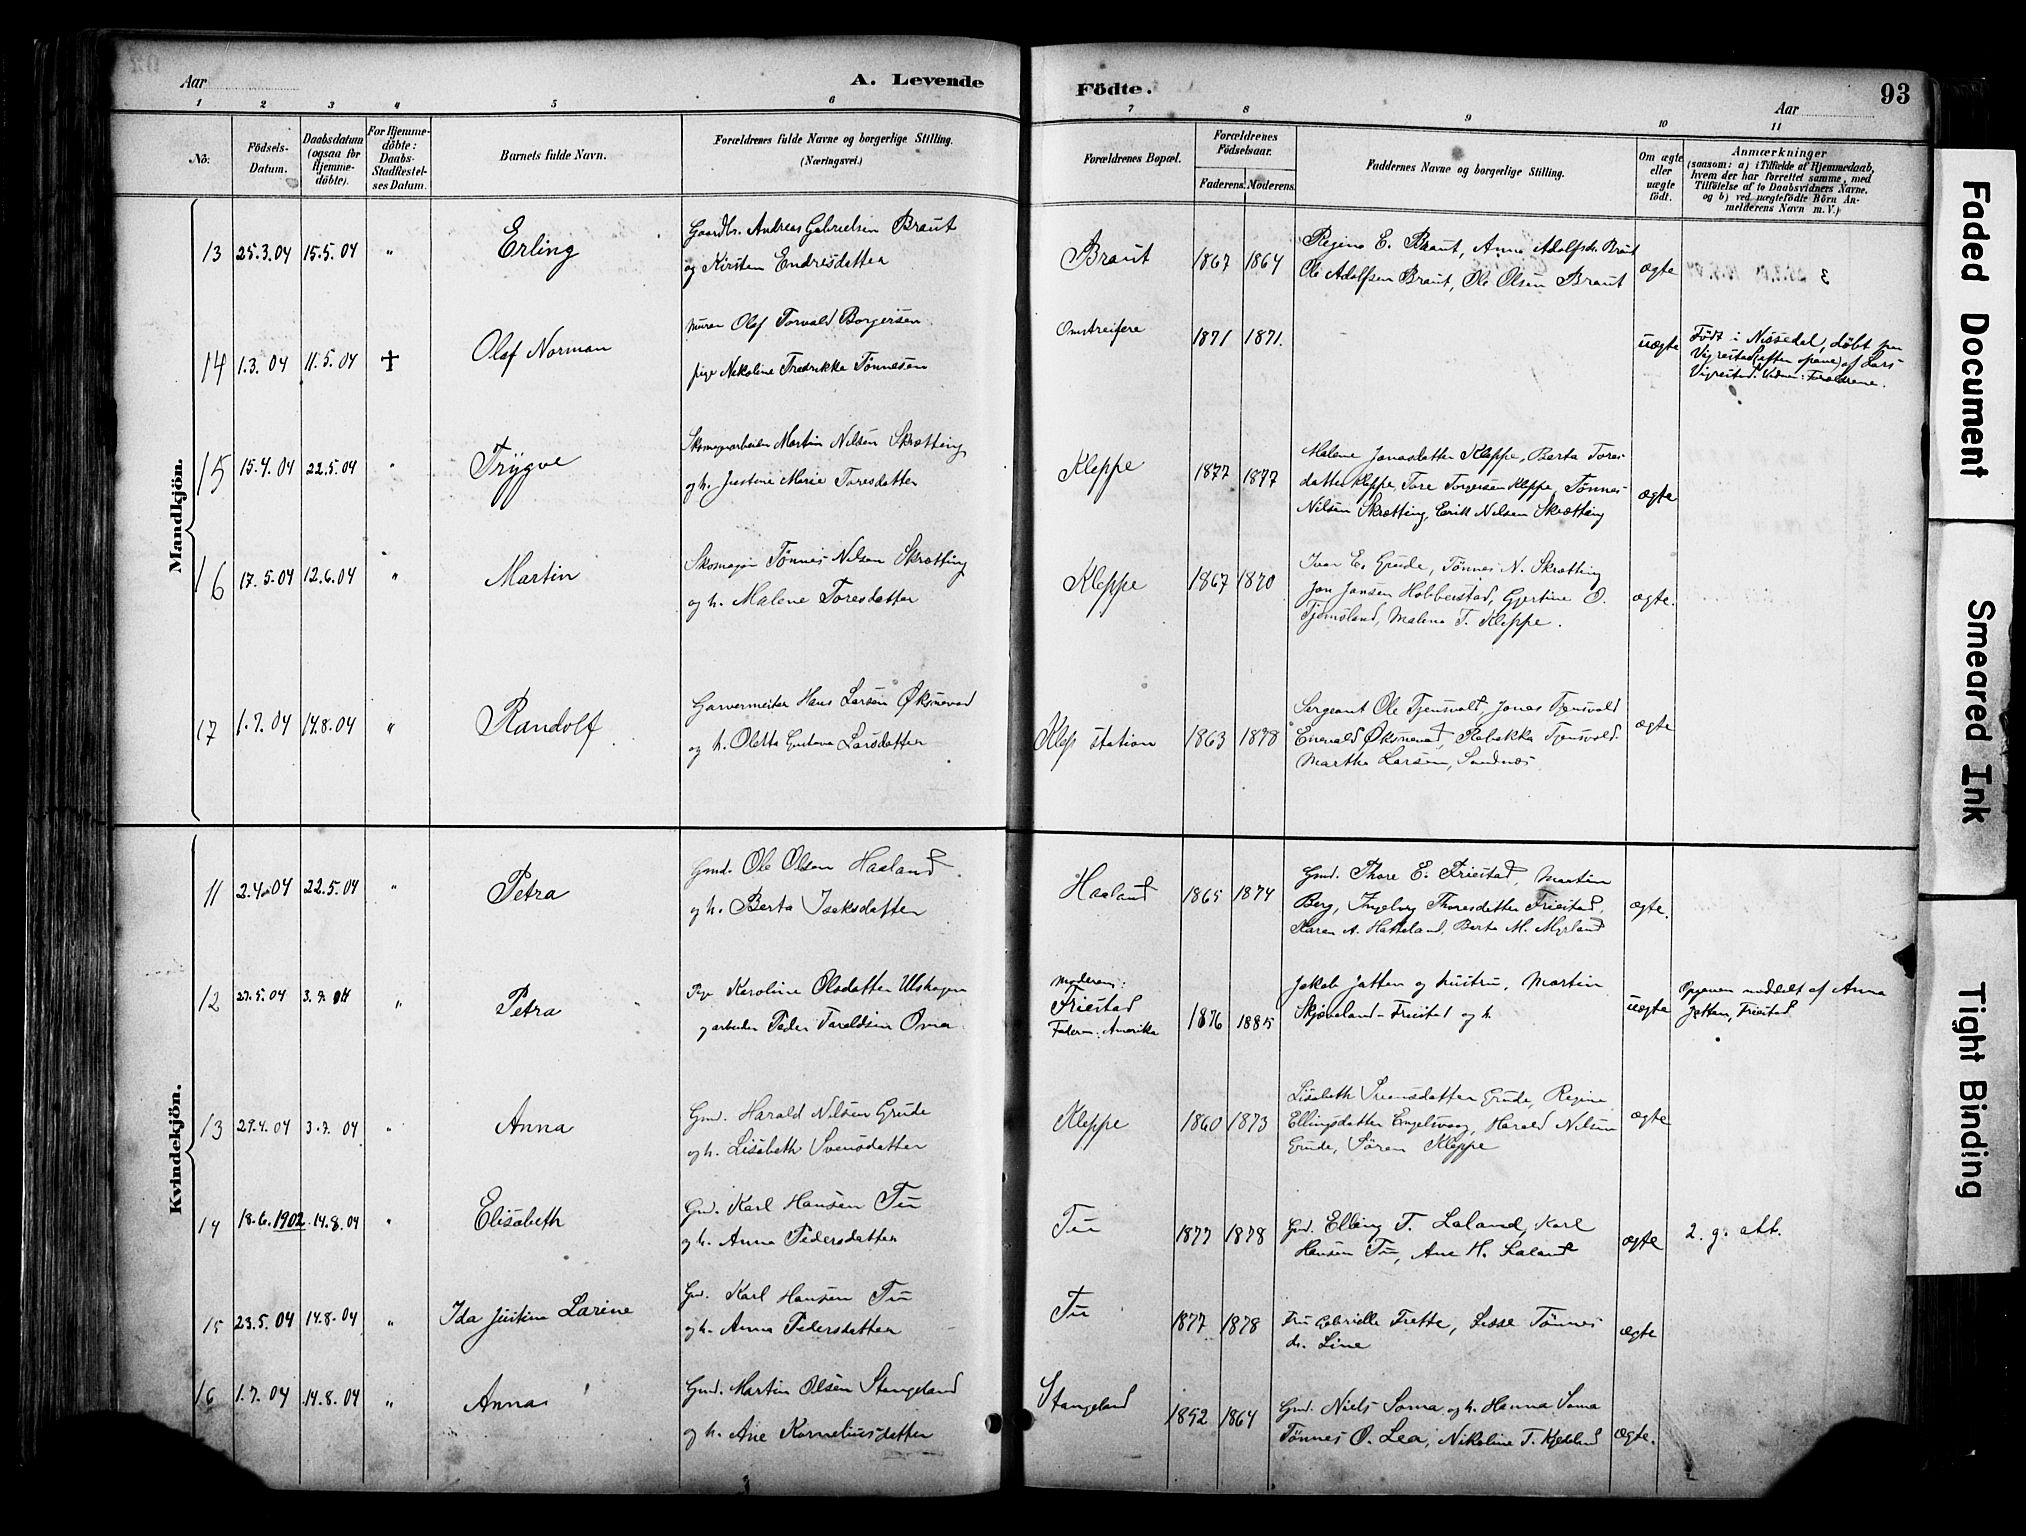 Aar
A. Levende
Födte.
Aar
93
1 2 3 4 5 6 7 8 9 10 11
No:
Födsels-Datum.
Daabsdatum (ogsaa for Hjemme-döbte).
For Hjemme-döbte: Daabs-Stadfæstel-ses Datum.
Barnets fulde Navn.
Forældrenes fulde Navne og borgerlige Stilling. (Næringsvei.)
Forældrenes Bopæl.
Forældrenes Födselsaar.
Faderens. Moderens.
Faddernes Navne og borgerlige Stilling.
Om ægte eller uægte födt.
Anmærkninger
(saasom: a) i Tilfælde af Hjemmedaab,
hvem der har forrettet samme, med
Tilföielse af to Daabsvidners Navne.
og b) ved uægtefödte Börn An-
melderens Navn m. V.)
Mandkjön.
13 25.3.04 15.5.04 " Erling
Gaardbr. Andreas Gabrielsen Braut
og Kirsten Endresdatter
Braut 1867 1864
Regine E. Braut, Anna Adolfsdr. Braut
Ole Adolfsen Braut, Ole Olsen Braut
ægte
14 1.3.04 11.5.04 + Olaf Norman
murer Olaf Torvald Borgersen
pige Nikoline Fredrikke Tönnesen
Omstreifere 1871 1871.
uægte
Födt i Nissedal, döbt paa
Vigrestad af Lars
Vigrestad. Vidner: Forældrene.
15 15.4.04 22.5.04 " Trygve
Skomagerarbeider Martin Nilsen Skrætting
og h. Justine Marie Toresdatter
Kleppe 1877 1877
Malene Jonasdatter Kleppe, Berta Tores
datter Kleppe, Tore Torgersen Kleppe, Tønnes
Nilsen Skrætting, Erik Nilsen Skrætting
ægte
16 17.5.04 12.6.04 " Martin
Skomager Tønnes Nilsen Skrætting
og h. Malene Toresdatter
Kleppe 1867 1870
Ivar E. Grude, Tønnes N. Skrætting
Jon Jonsen Hobberstad, Gjertine O.
Tjemsland, Malene T. Kleppe.
ægte.
17 1.7.04 14.8.04 " Randolf
Garvermester Hans Larsen Øksnevad
og h. Oletta Gustava Larsdatter
Klep station 1863 1878
Sergeant Ole Tjensvold, Jonas Tjensvold
Enevald Øksnevad, Rebekka Tjensvold
Martha Larsen, Sandnes
ægte
Kvindekjön.
11 2.4.04 22.5.04 " Petra
Gmd. Ole Olsen Haaland
og h. Berta Iseksdatter
Haaland 1865 1874
Gmd. Thore E. Friestad, Martin
Berg, Ingeborg Thoresdatter Friestad,
Karen A. Hatteland, Berta M. Myrland
ægte.
12 27.5.04 3.7.04 " Petra
Pige Karoline Olsdatter Ulshagen
g arbeider Peder Taraldsen Oma
Moderens:
Friestad
Faderns: Amerika
1876 1885
Jakob Jatten og hustru, Martin
Skjæveland-Friestad og h.
uægte
Opgaven meddelt af Anna
Jatten, Friestad
13 29.4.04 3.7.04 " Anna
Gmd. Harald Nilsen Grude
og h. Lisabeth Svensdatter
Kleppe 1860 1873
Lisabeth Svensdatter Grude, Regine
Ellingsdatter Engelsvaag, Harald Nilsen
Grude, Sören Kleppe
ægte
14 18.6.1902 14.8.04 " Elisabeth
Gmd. Karl Hansen Tu
og h. Anna Pedersdatter
Tu 1877 1878
Gmd. Elling T. Laland, Karl
Hansen Tu, Ane H. Laland
ægte
2. g. att.
15 23.5.04 14.8.04 " Ida Justine Larine
Gmd. Karl Hansen Tu
og h. Anna Pedersdatter
Tu 1877 1878
Fru Gabrielle Frette, Lisse Tönnes
dr. Line
ægte
16 1.7.04 14.8.04 " Anna
Gmd. Martin Olsen Stangeland
og h. Ane Kornelius datter
Stangeland 1852 1864
Gmd. Niels Soma og h. Hanna Soma
Tönnes O. Lea, Nikoline T.
ægte.
Faded Document
Smeared Ink
Tight Binding